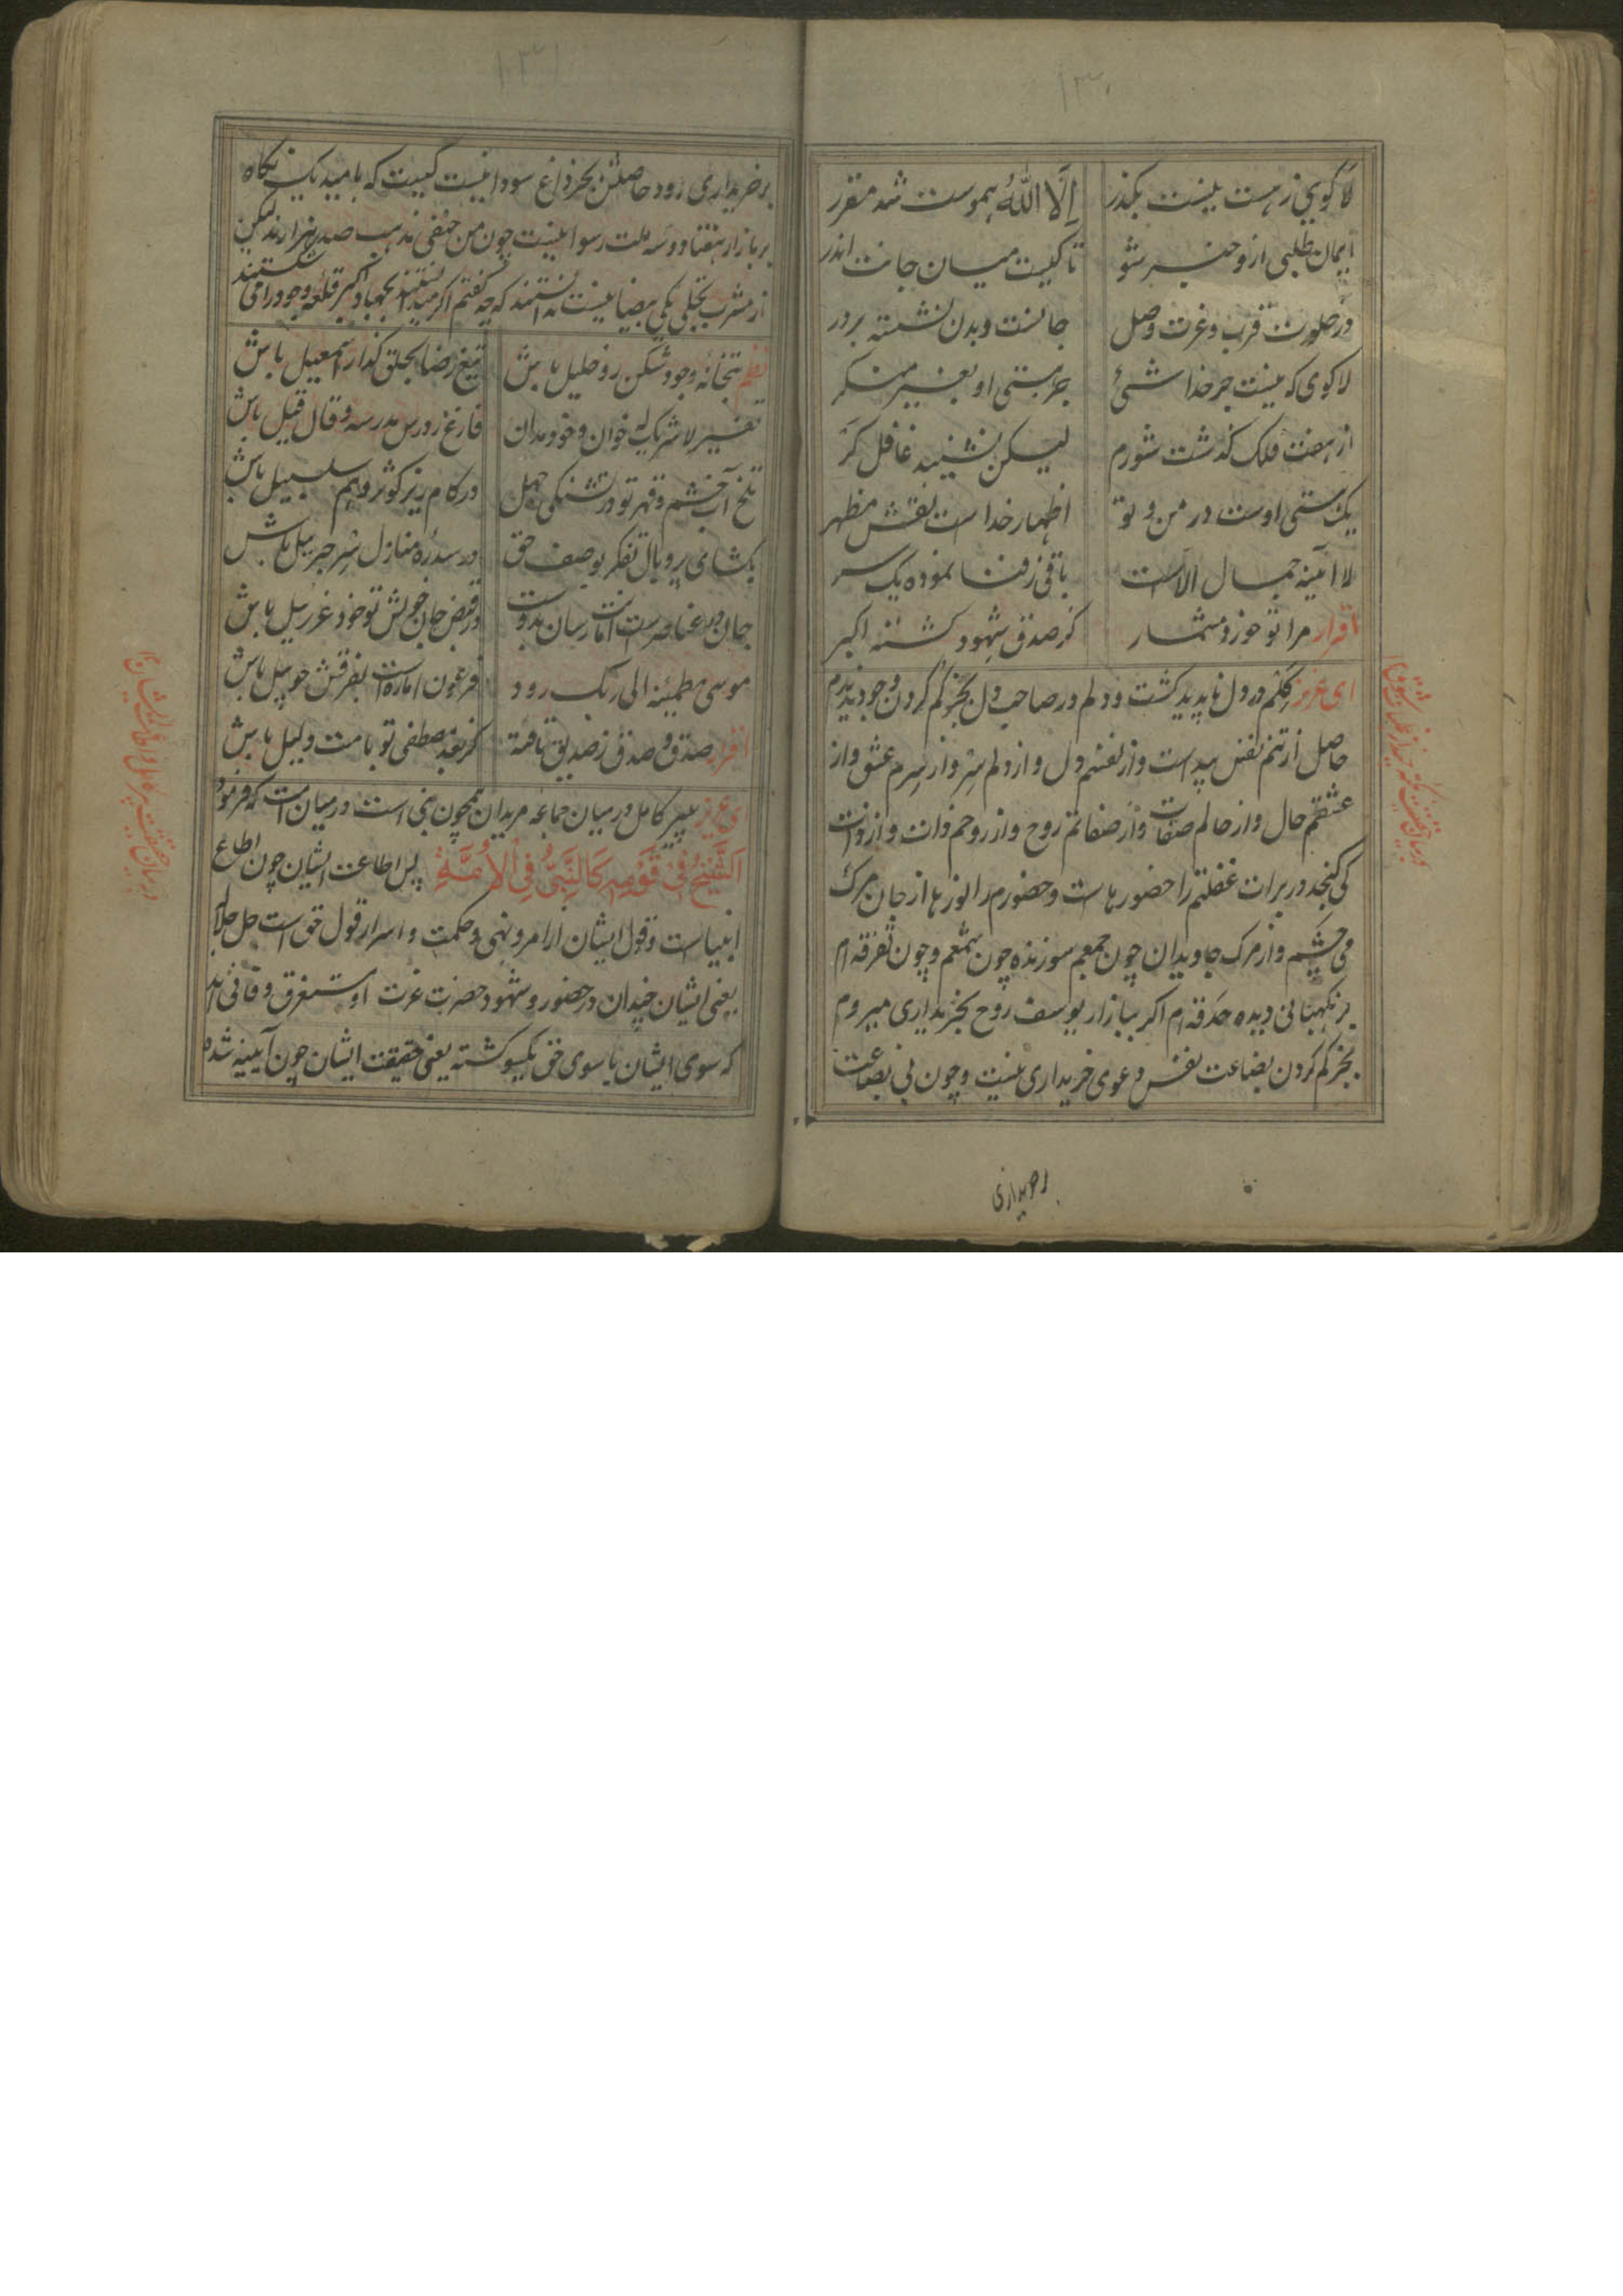 ۱۳۰
لا کویی ز هست نیست بکذر
اِلَّا اللّٰهُ هموست شد مقرر
ایمان طلبی ازو خبر شو
تا کیست میان جانت اندر
در خلوت قرب و عزت وصل
جانست و بدن نشسته بر در
لا کوی که نیست جز خدا شئ
جز هستی او بغیر منکر
از هفت فلک کذشت شورم
لیکن نشنید غافل کر
یک هستی اوست در من و تو
اظهار خدا ست نقش مظهر
لا آئینه جمال الاست
باقی ز فنا نموده یک سر
اقرار مرا تو خورد مشمار
کز صدق شهود کشته اکبر
ای عزیز کلم در دل ناپدید کشت و دلم در صاحب دل بجز کم کردن وجود ندیدم
حاصل از تنم نفس پیداست و از نفسم دل و از دلم سِر و از سِرم عشق و از
عشقم حال و از حالم صفات و از صفاتم روح و از روحم ذات و از ذات
کی کنجد در برات غفلتم را حضورهاست و حضورم را نورها از جان مرک
می چشم و از مرک جاویدان چون جمعم سوزنده چون شمعم و چون تفرقه ام
بر نکهبانی دیده حدقه ام اکر ببازار یوسف روح بخریداری میروم
بجز کم کردن بضاعت نفس دعوی خریداری نیست و چون بی بضاعت
بر خریداری
۱۳۱
بر خریداری رود حاصلش بجز داغ سودا نیست کیست که بامید یک نکاه
بر بازار هفتاد و سه ملت رسوا نیست چون من حنفی مذهب صد هزارند لیکن
از مشرب تجلی یکی بیضا نیست ندانستند که چه کفتم اکر میدانستند بجهاد اکبر قلعه وجود را می شکستند
نظم بتخانه وجود شکن رو خلیل باش
تیغ رضا بحلق کذار اسمعیل باش
تفسیر لا شریک له خوان و خود مدان
فارغ ز درس مدرسه و قال قیل باش
تلخ آب خشم و قهر تو در تشنکی جهل
در کام ریز کوثر و هم سلسبیل باش
بکشای پر و بال تفکر بوصف حق
در سدره منازل سِر جبرئیل باش
جان در عناصرست امانت رسان بدوست
در قبض جان خویش تو خود عزرئیل باش
موسی مطمئنه الی ربک رود
فرعون اماره است بغرقش چو نیل باش
اقرار صدق و صدق ز صدیق یافته
کز بعد مصطفی تو بامت دلیل باش
ای عزیز پیر کامل در میان جماعه مریدان همچون نبی است در میان امت که فرمود
اَلشَّیْخُ فِیْ قَوْمِهٖ کَالنَّبِیِّ فِی الْاُمَّةِ پس اطاعت ایشان چون اطاع
انبیاست و قول ایشان از امر و نهی و حکمت و اسرار قول حق است جل جلاله
یعنی ایشان چندان در حضور و شهود حضرت عزت او مستغرق و فانی اند
که سوی ایشان با سوی حق یکسو کشته یعنی حقیقت ایشان چون آیینه شده